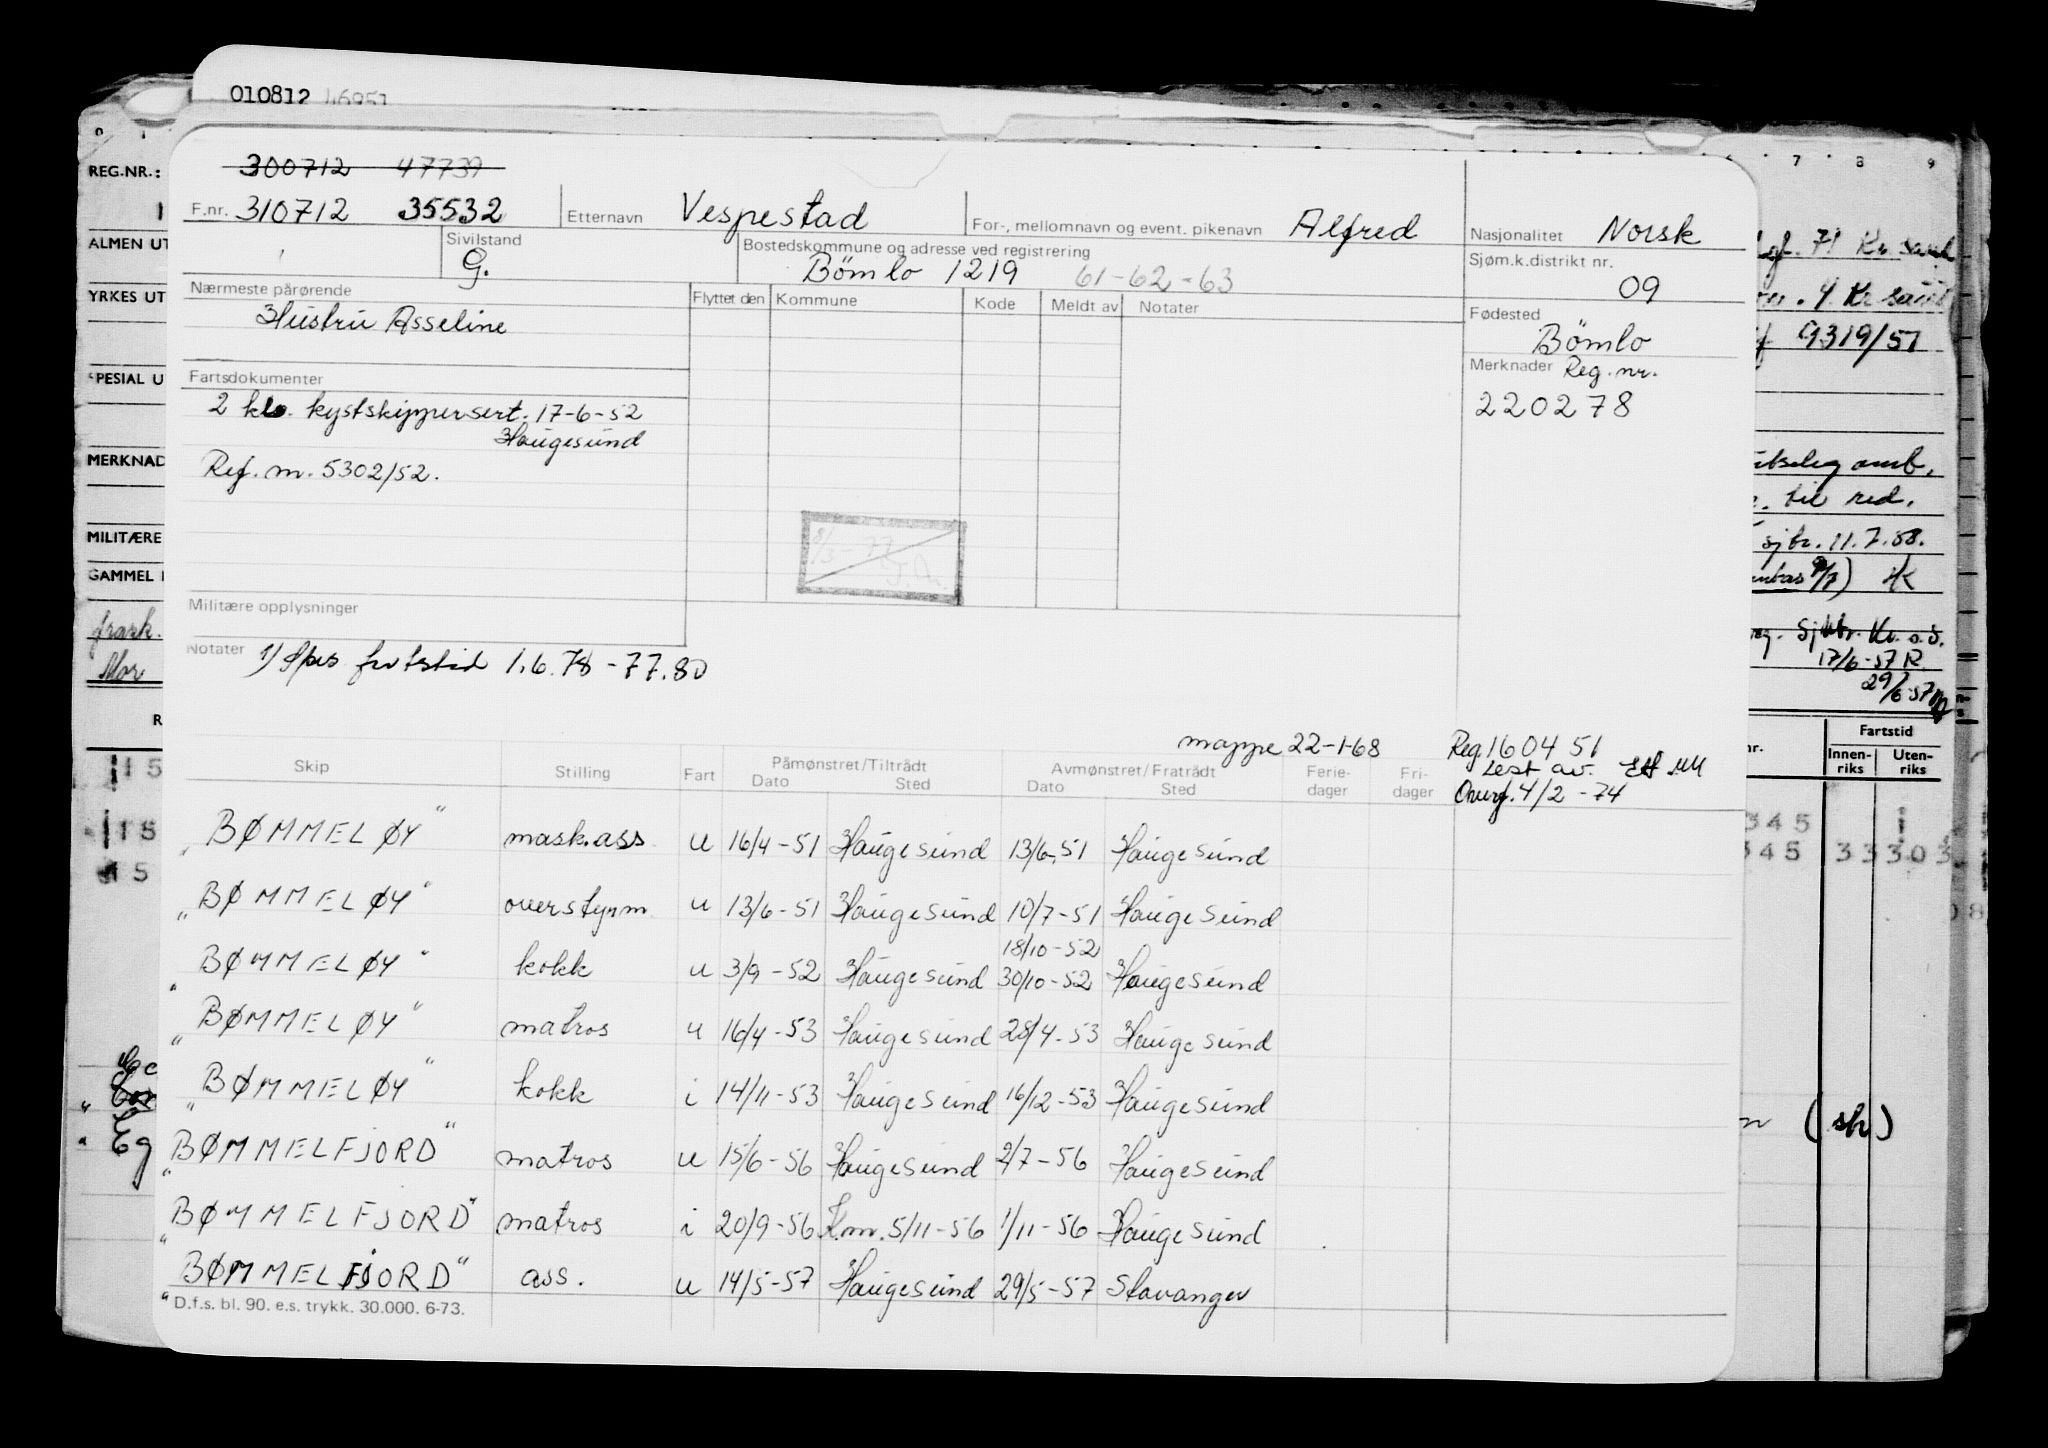 010812 46951
REG.NR.:
300712 47739
F.nr. 310712 35532 Etternavn Vespestad For-, mellomnavn og event. pikenavn Alfred Nasjonalitet Norsk
ALMEN UT
Sivilstand G. Bostedskommune og adresse ved registrering Bömlo 1219 61-62-63 Sjøm.k.distrikt nr. 09
YRKES UT
Nærmeste pårørende Hustru Asseline
Flyttet den Kommune Kode Meldt av Notater
Fødested Bömlo
Merknader Reg.nr. 220278
SPESIAL U
Fartsdokumenter
2 kl. kystskippersert. 17-6-52
Haugesund
Ref. m. 5302/52.
MERKNAD
MILITÆRE
GAMMEL
Militære opplysninger
Notater 1) Spes fartstid 1.6.78 - 77.80
71 Kr. sand
4 Kr sand
9319/51
amb.
til red.
sjbr. 11.7.58.
Kr. o. S.
17/6-57 R
29/6-57
mappe 22-1-68 Reg 160451
Lest av.
Overf. 4/2-74
Skip Stilling Fart Påmønstret/Tiltrådt Dato Sted Avmønstret/Fratrådt Dato Sted Ferie-dager Fri-dager
nr. Fartstid
Innen-riks Uten-riks
"BØMMELØY" mask.ass. u 16/4-51 Haugesund 13/6-51 Haugesund
"BØMMELØY" overstyrm. u 13/6-51 Haugesund 10/7-51 Haugesund
18/10-52
"BØMMELØY" kokk u 3/9-52 Haugesund 30/10-52 Haugesund
"BØMMELØY" matros u 16/4-53 Haugesund 28/4-53 Haugesund
"BØMMELØY" kokk i 14/11-53 Haugesund 16/12-53 Haugesund
"BØMMELFJORD" matros u 15/6-56 Haugesund 2/7-56 Haugesund
"BØMMELFJORD" matros i 20/9-56 K.m. 5/11-56 1/11-56 Haugesund
"BØMMELFJORD" ass. u 14/5-57 Haugesund 29/5-57 Stavanger
D.f.s. bl. 90. e.s. trykk. 30.000. 6-73.
345
345 33303
(sh)